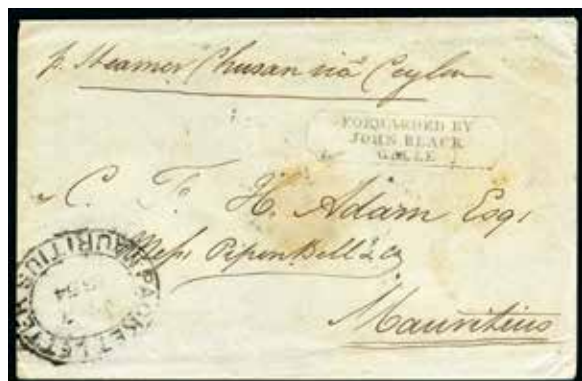 p. Steamer Chusan via Ceylon
FORWARDED BY
JOHN BLACK
GALLE
C. F. H. Adam Esqr
Messrs Pipon Bell & Co
Mauritius
PACKET LETTER
MAURITIUS